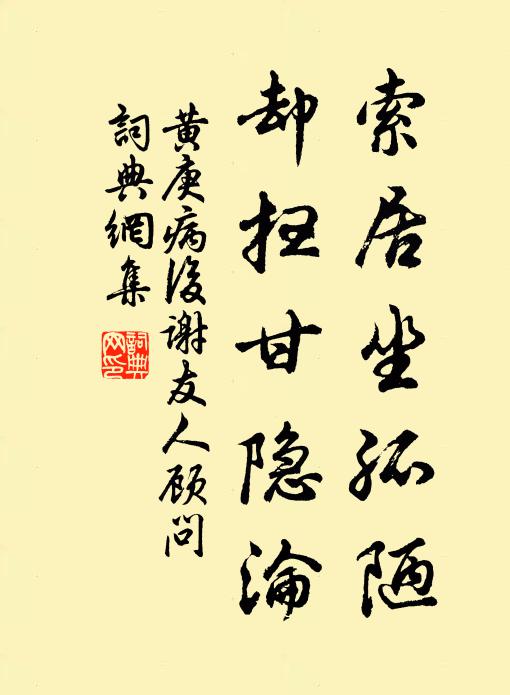 索居坐孤陋
却扫甘隐淪
黄庚病後谢友人顾问
詞典網集
詞典網印